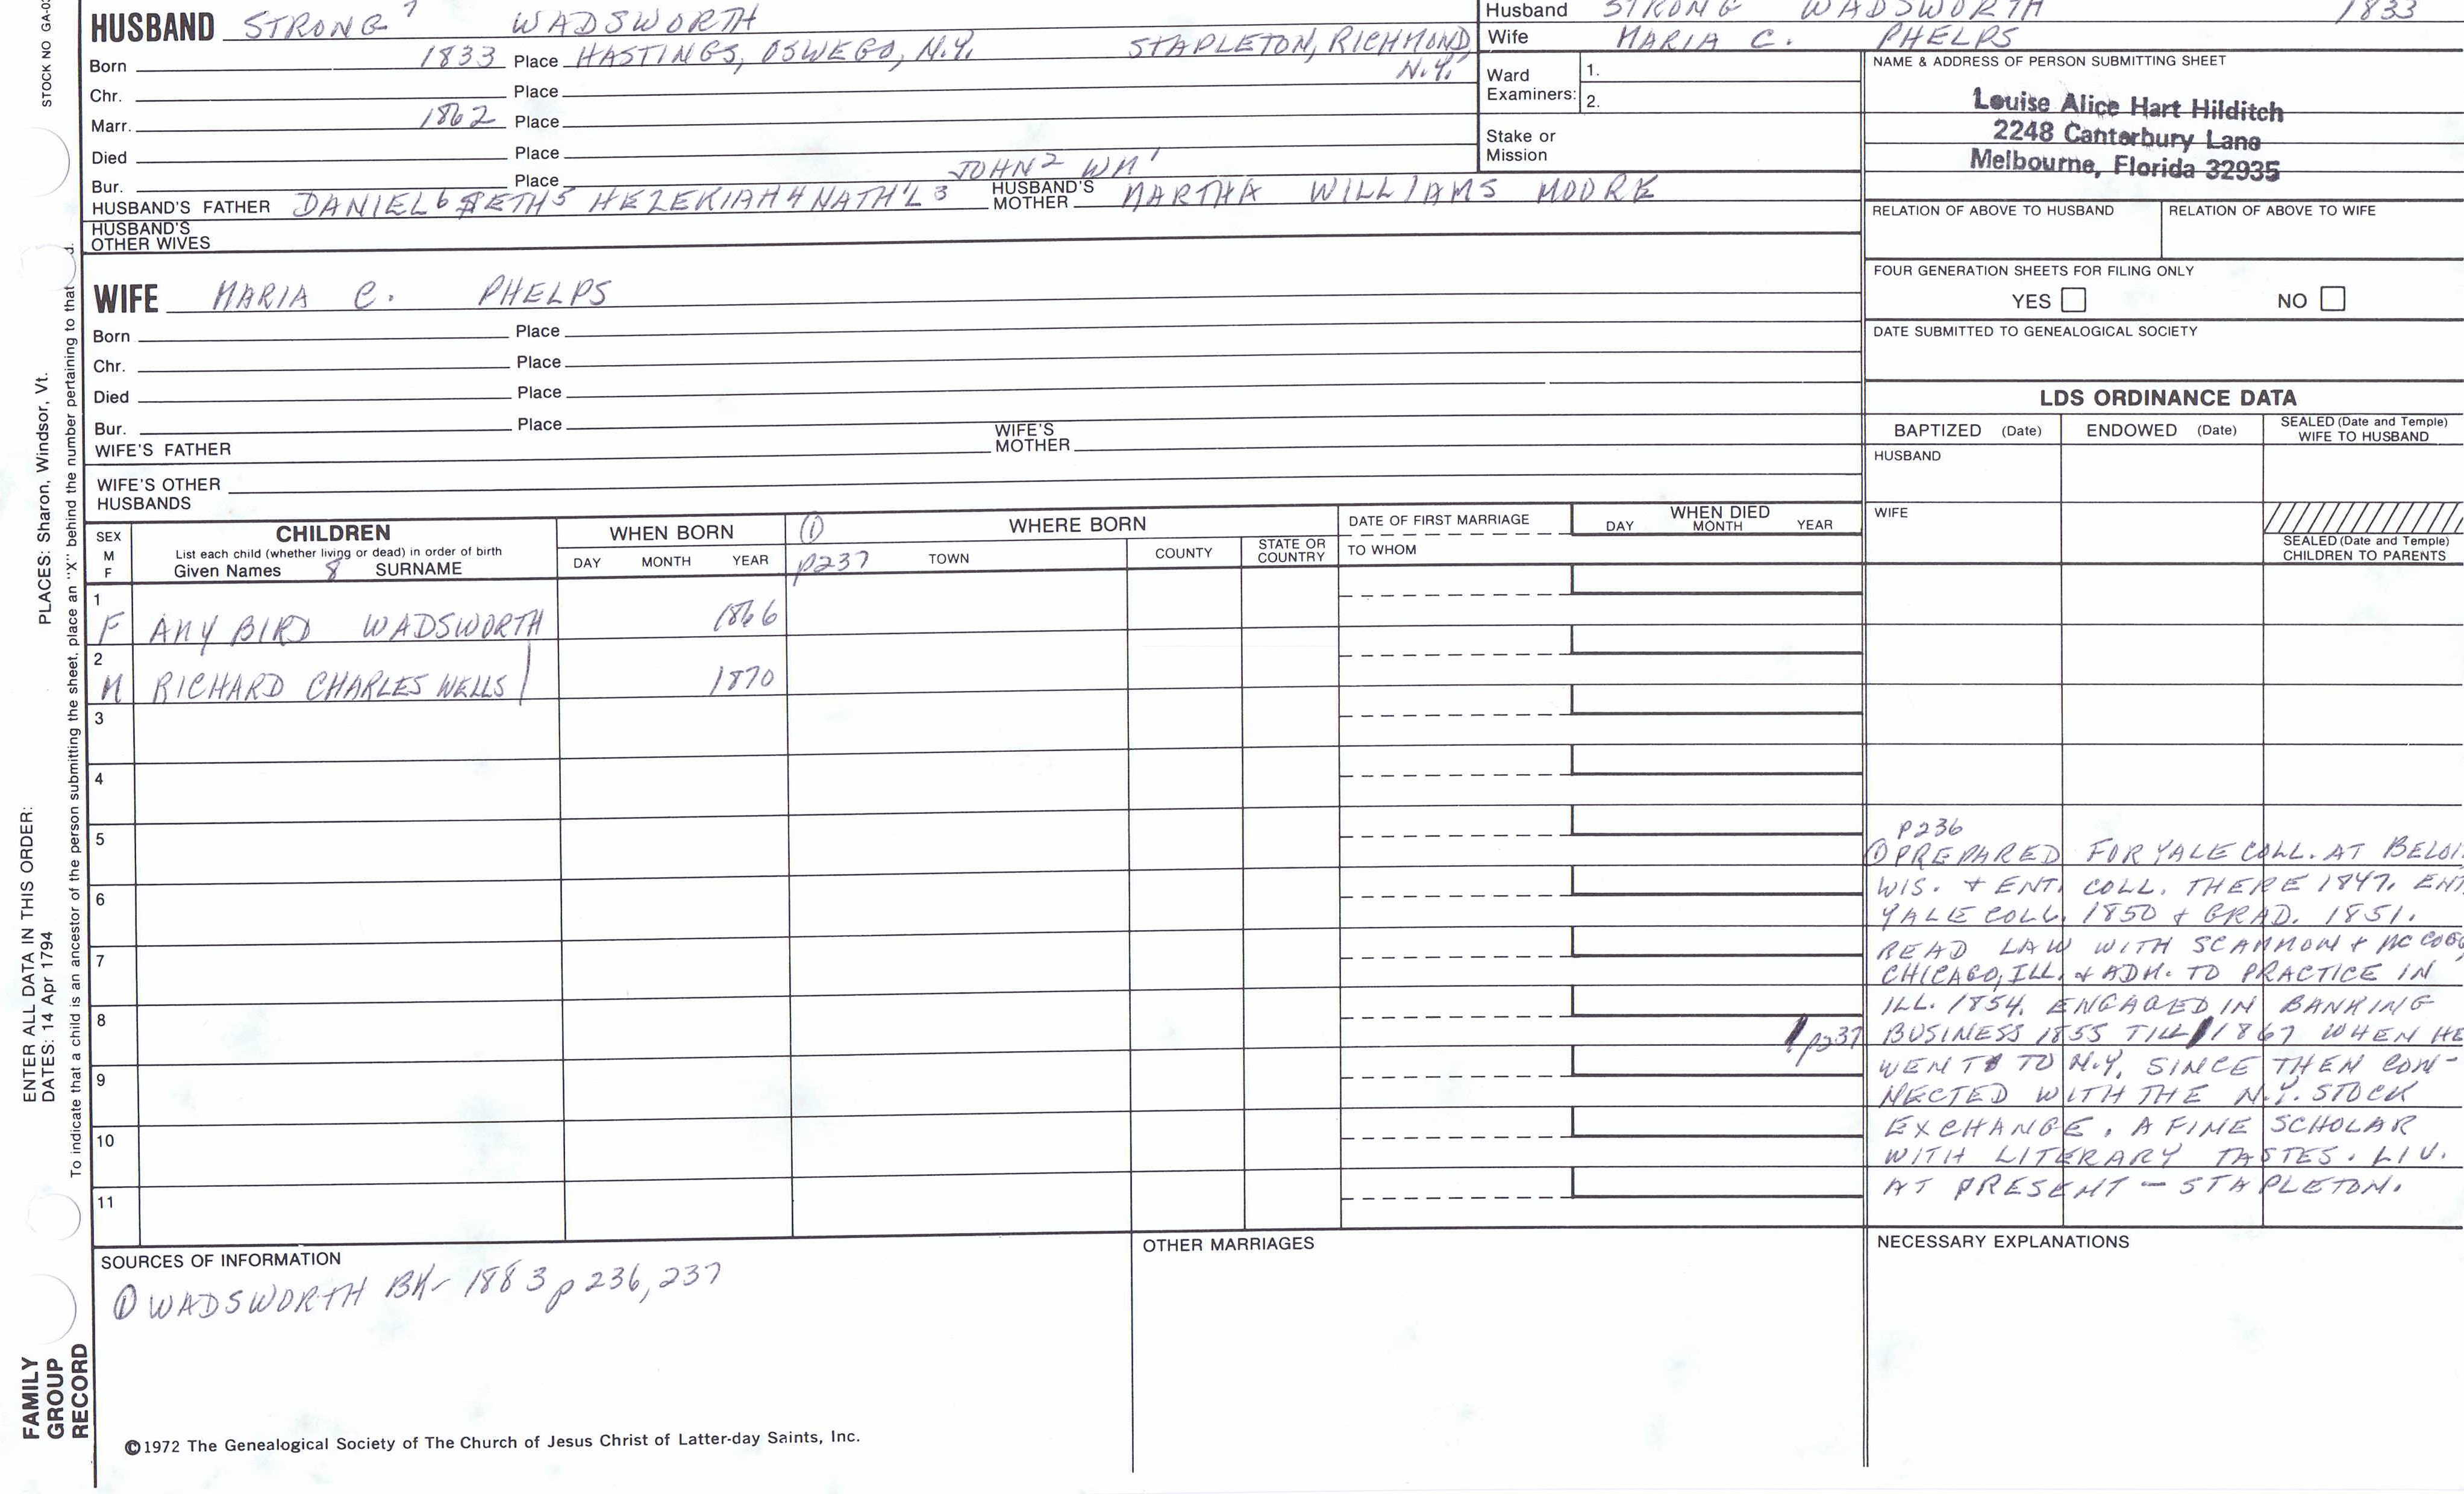 STOCK NO GA-0
HUSBAND STRONG 7 WADSWORTH
Born 1833 Place HASTINGS, OSWEGO, N.Y. STAPLETON, RICHMOND
N.Y.
Chr. Place
Marr. 1862 Place
Died Place
Bur. Place JOHN 2 WM 1
HUSBAND'S FATHER DANIEL 6 SETH 5 HEZEKIAH 4 NATH'L 3 HUSBAND'S MOTHER MARTHA WILLIAMS MOORE
HUSBAND'S
OTHER WIVES
Husband STRONG WADSWORTH 1833
Wife MARIA C. PHELPS
Ward
Examiners:
1.
2.
Stake or
Mission
NAME & ADDRESS OF PERSON SUBMITTING SHEET
Louise Alice Hart Hilditch
2248 Canterbury Lane
Melbourne, Florida 32935
RELATION OF ABOVE TO HUSBAND RELATION OF ABOVE TO WIFE
FOUR GENERATION SHEETS FOR FILING ONLY
YES NO
DATE SUBMITTED TO GENEALOGICAL SOCIETY
WIFE MARIA C. PHELPS
Born Place
Chr. Place
Died Place
Bur. Place
WIFE'S FATHER WIFE'S MOTHER
WIFE'S OTHER
HUSBANDS
LDS ORDINANCE DATA
BAPTIZED (Date) ENDOWED (Date) SEALED (Date and Temple)
WIFE TO HUSBAND
HUSBAND
WIFE
SEALED (Date and Temple)
CHILDREN TO PARENTS
SEX
M
F
CHILDREN
List each child (whether living or dead) in order of birth
Given Names 8 SURNAME
WHEN BORN
DAY MONTH YEAR
① WHERE BORN
p237 TOWN COUNTY STATE OR COUNTRY
DATE OF FIRST MARRIAGE
TO WHOM
WHEN DIED
DAY MONTH YEAR
1
F AMY BIRD WADSWORTH 1866
2
M RICHARD CHARLES WELLS 1870
3
4
5
6
7
8
9
10
11
P236
① PREPARED FOR YALE COLL. AT BELOI
WIS. + ENT. COLL. THERE 1847. ENT
YALE COLL. 1850 + GRAD. 1851.
READ LAW WITH SCAMMON + MC
CHICAGO, ILL. + ADM. TO PRACTICE IN
ILL. 1854. ENGAGED IN BANKING
p237 BUSINESS 1855 TILL 1867 WHEN HE
WENT TO N.Y. SINCE THEN CON-
NECTED WITH THE N.Y. STOCK
EXCHANGE. A FINE SCHOLAR
WITH LITERARY TASTES. LIV.
AT PRESENT - STAPLETON.
SOURCES OF INFORMATION
① WADSWORTH BK- 1883 p 236, 237
OTHER MARRIAGES
NECESSARY EXPLANATIONS
©1972 The Genealogical Society of The Church of Jesus Christ of Latter-day Saints, Inc.
FAMILY
GROUP
RECORD
ENTER ALL DATA IN THIS ORDER:
DATES: 14 Apr 1794
PLACES: Sharon, Windsor, Vt.
To indicate that a child is an ancestor of the person submitting the sheet, place an "X" behind the number pertaining to that